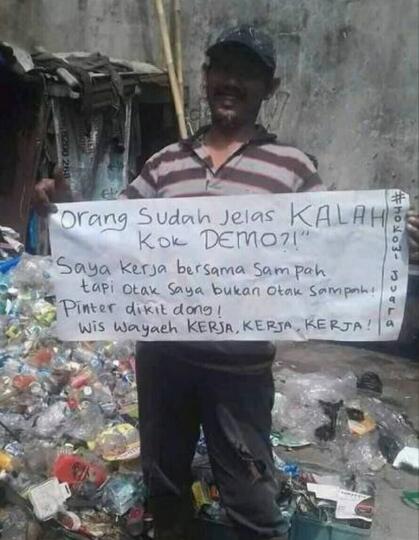 "Orang Sudah Jelas KALAH
Kok DEMO?!"
Saya Kerja bersama Sampah
tapi otak Saya bukan otak Sampah!
Pinter dikit dong!
Wis Wayaeh KERJA, KERJA, KERJA!
#JOKOWI-JUARA